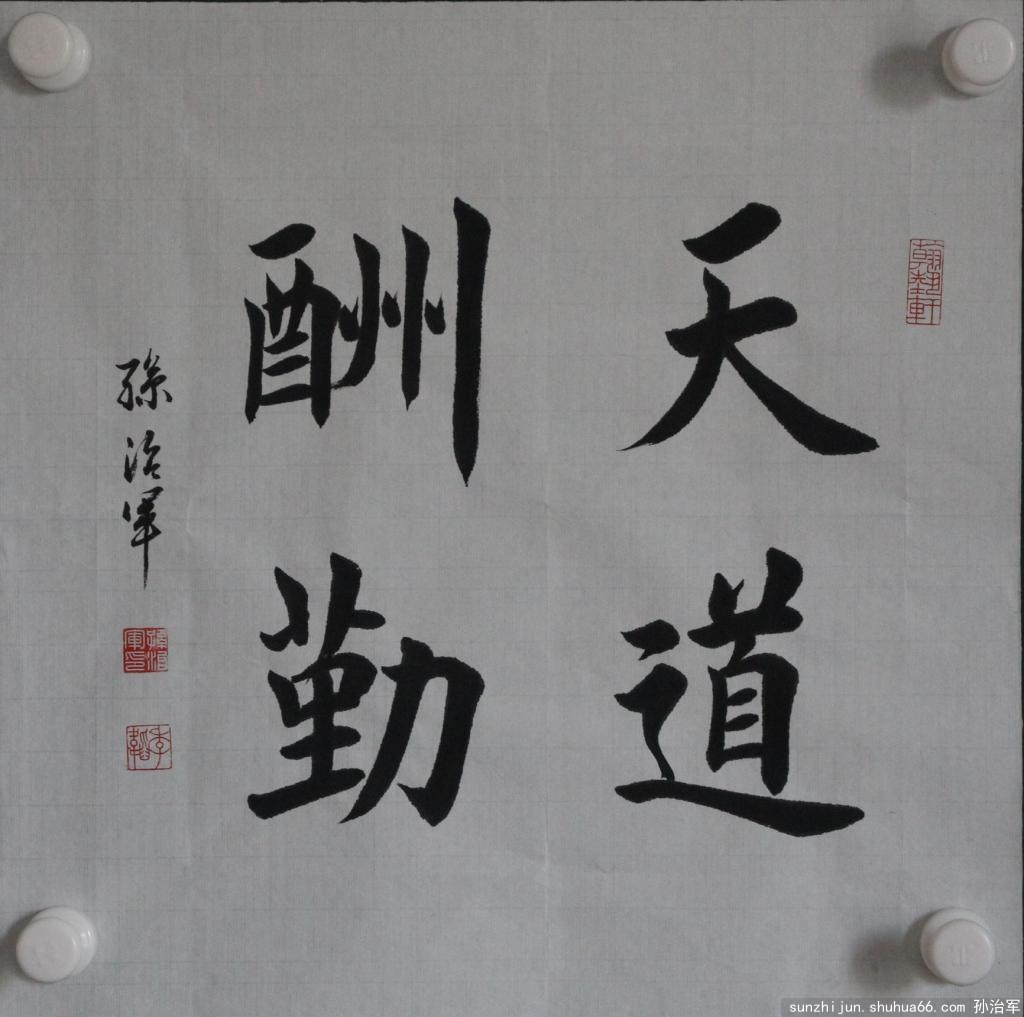 天道
酬勤
孫治軍
翰墨軒
孫治軍印
sunzhijun.shuhua66.com 孙治军